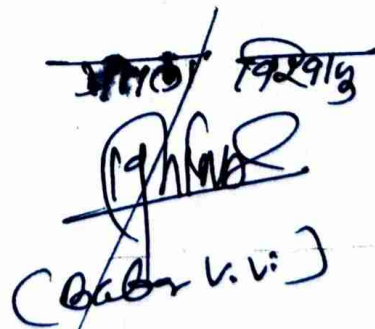 आपला विश्वासू
(Babar V. V.)